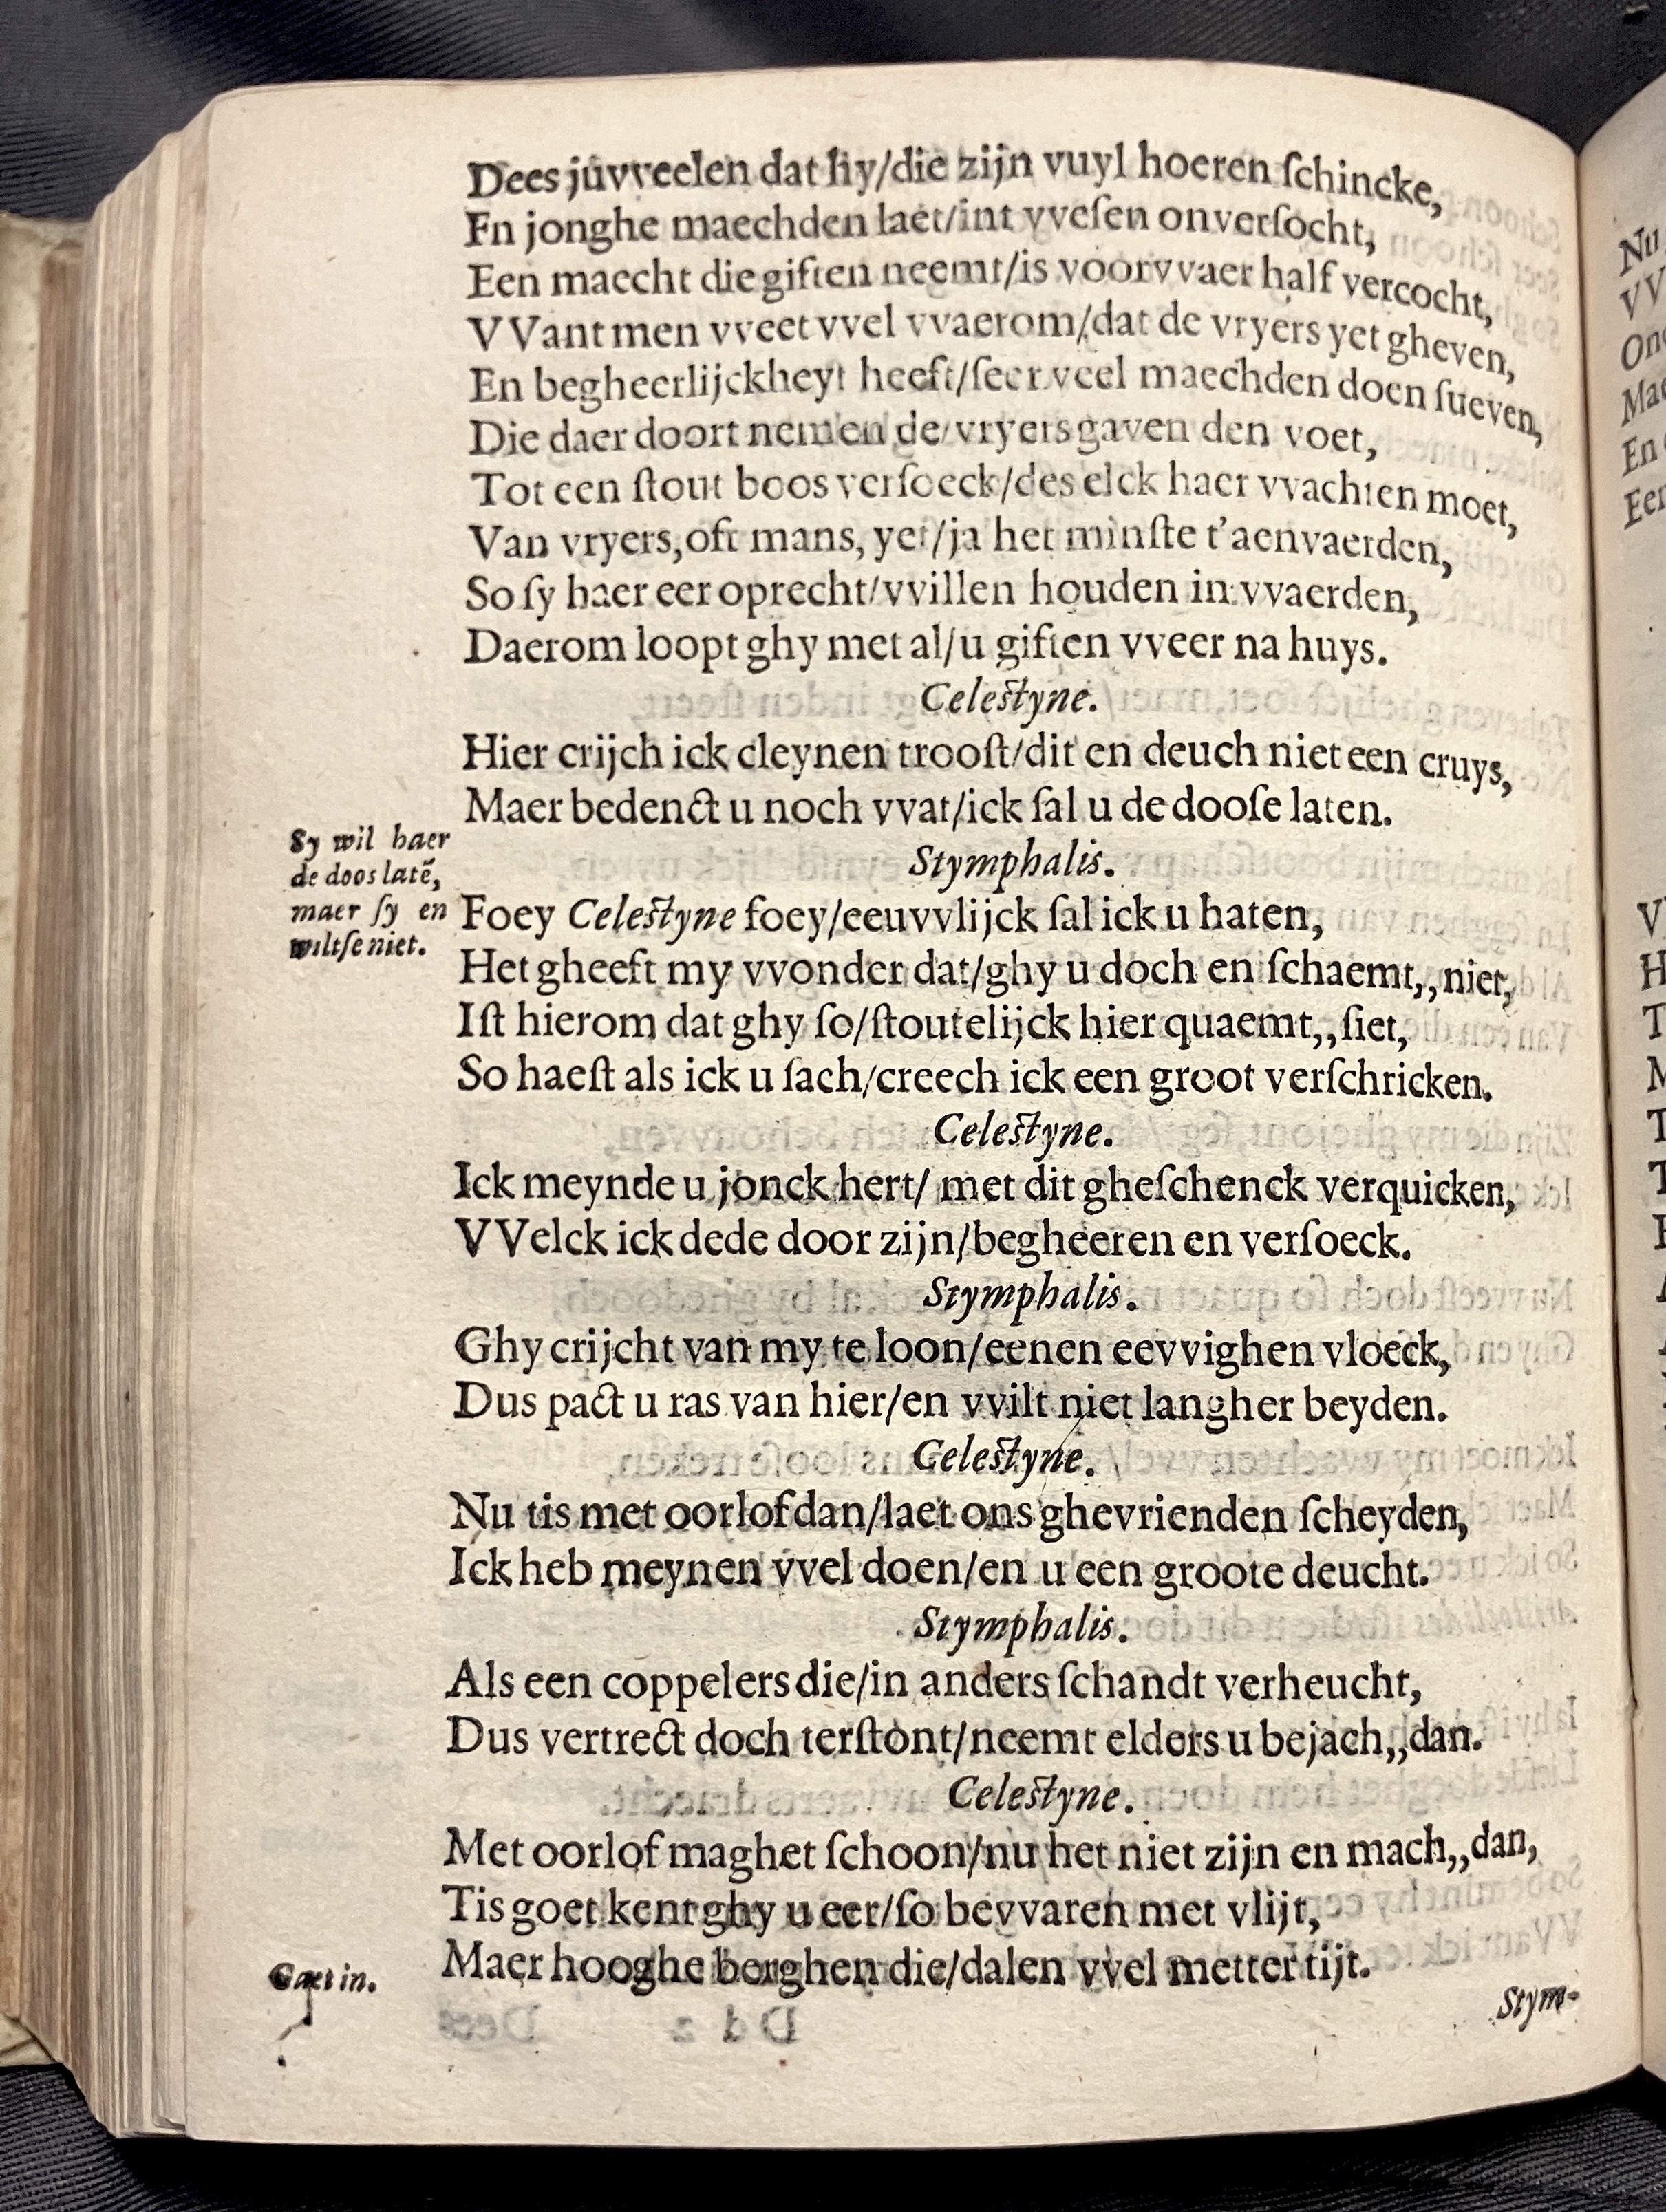 Dees juvveelen dat hy/die zijn vuyl hoeren ſchincke,
En jonghe maechden laet/int vveſen onverſocht,
Een maecht die giften neemt/is voorvvaer half vercocht,
VVant men vveet vvel vvaerom/dat de vryers yet gheven,
En begheerlijckheyt heeft/ſeer veel maechden doen ſueven,
Die daer doort nemen de vryers gaven den voet,
Tot een ſtout boos verſoeck/des elck haer vvachten moet,
Van vryers, oft mans, yet/ja het minſte t'aenvaerden,
So ſy haer eer oprecht/vvillen houden in vvaerden,
Daerom loopt ghy met al/u giften vveer na huys.
Celeſtyne.
Hier crijch ick cleynen trooſt/dit en deuch niet een cruys,
Maer bedenct u noch vvat/ick ſal u de dooſe laten.
Sy wil haer
de doos latẽ,
maer ſy en
wiltſe niet.
Stymphalis.
Foey Celeſtyne foey/eeuvvlijck ſal ick u haten,
Het gheeft my vvonder dat/ghy u doch en ſchaemt,,niet,
Iſt hierom dat ghy ſo/ſtoutelijck hier quaemt,,ſiet,
So haeſt als ick u ſach/creech ick een groot verſchricken.
Celeſtyne.
Ick meynde u jonck hert/ met dit gheſchenck verquicken,
VVelck ick dede door zijn/begheeren en verſoeck.
Stymphalis.
Ghy crijcht van my te loon/eenen eevvighen vloeck,
Dus pact u ras van hier/en vvilt niet langher beyden.
Celeſtyne.
Nu tis met oorlof dan/laet ons ghevrienden ſcheyden,
Ick heb meynen vvel doen/en u een groote deucht.
Stymphalis.
Als een coppelers die/in anders ſchandt verheucht,
Dus vertrect doch terſtont/neemt elders u bejach,,dan.
Celeſtyne.
Met oorlof maghet ſchoon/nu het niet zijn en mach,,dan,
Tis goet kent ghy u eer/ſo bevvaren met vlijt,
Maer hooghe berghen die/dalen vvel metter tijt.
Gaet in.
Stym-